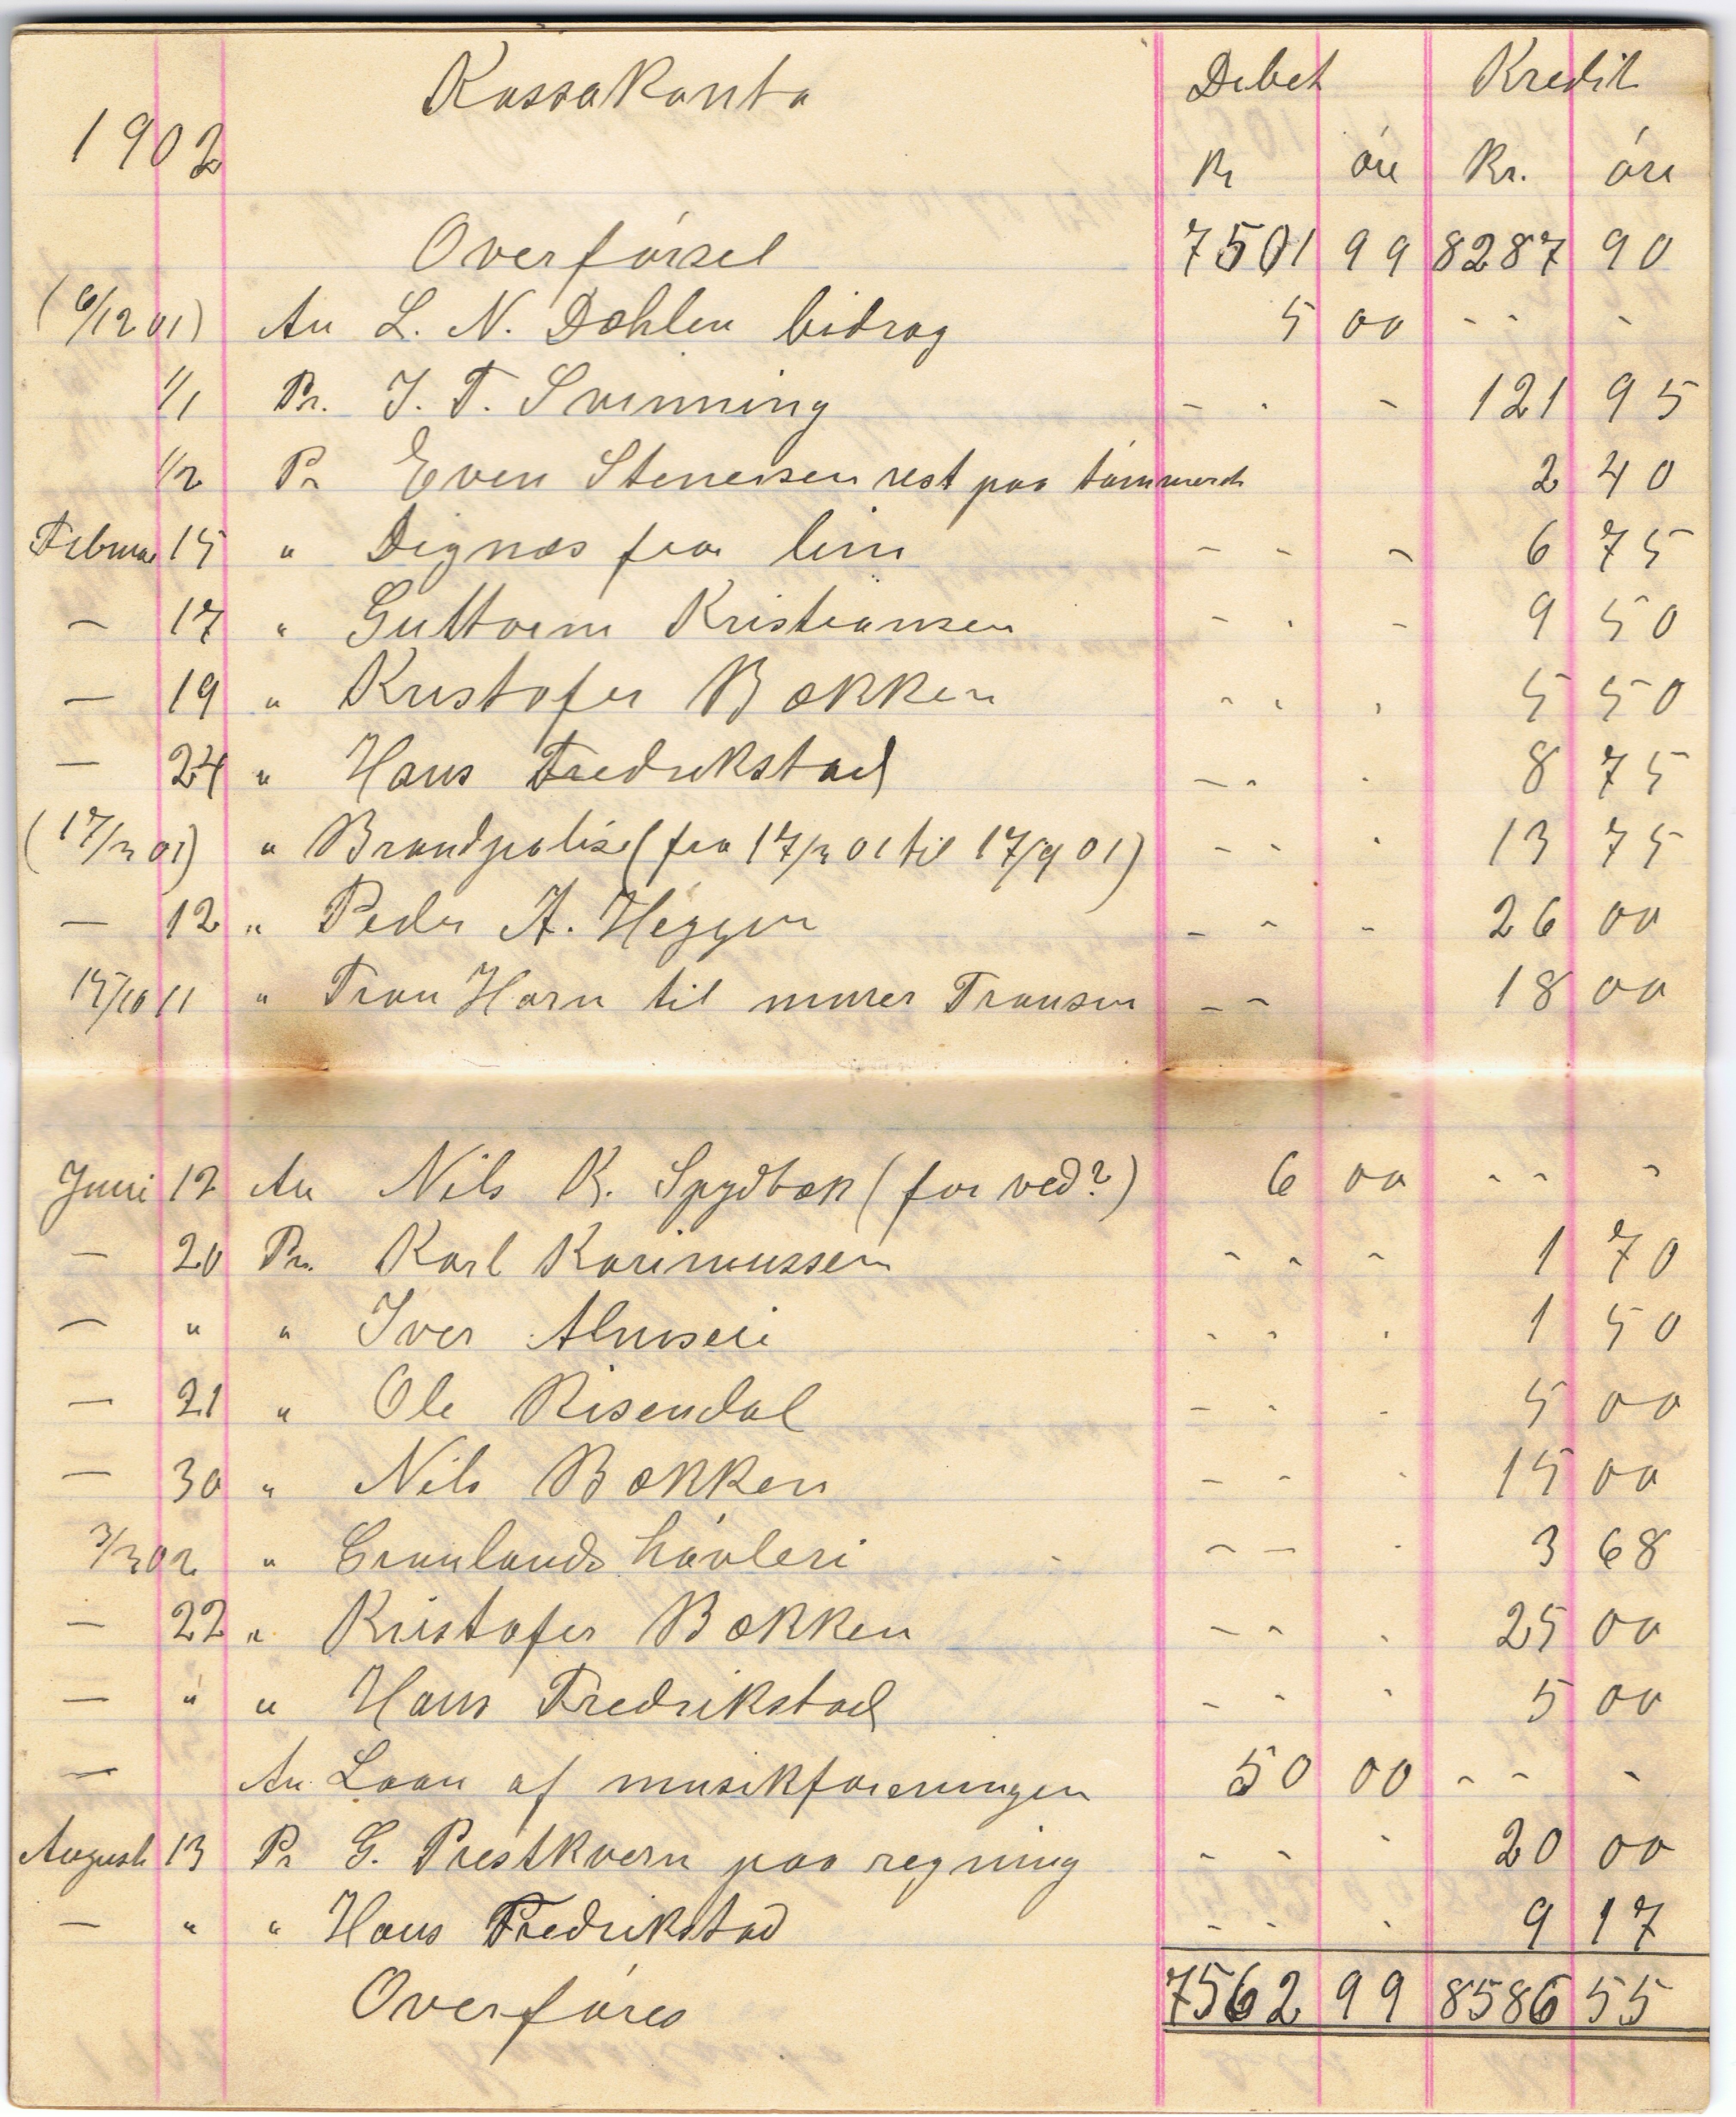 Kassakonto Debet Kredit
1902 Kr øre Kr. øre
Overførsel 7501 99 8287 90
(6/12 01) An L. N. Dæhlen bidrag 5 00 - - -
1/1 Pr. J. T. Svinning - - - 121 95
1/2 Pr Even Stenersen rest paa tømmerch 2 40
Februar 15 " Dignæs for lim - - - 6 75
— 17 " Guttorm Kristiansen - - - 9 50
— 19 " Kristofer Bækken - - - 5 50
— 24 " Hans Fredrikstad - - - 8 75
(17/3 01) " Brandpolise (fra 17/3 01 til 17/9 01) - - - 13 75
— 12 " Peder A. Heggen - - - 26 00
15/10 11 " Fran Horn til murer Fransen - - 18 00
Juni 12 An Nils K. Spydbæk (for ved?) 6 00 - - -
— 20 Pr. Karl Karimussen - - - 1 70
— " " Iver Almseie - - - 1 50
— 21 " Ole Risendal - - - 5 00
— 30 " Nils Bækken - - - 15 00
3/3 02 " Grønlands høvleri - - - 3 68
— 22 " Kristofer Bækken - - - 25 00
— " " Hans Fredrikstad - - - 5 00
— An Laan af musikforeningen 50 00 - - -
August 13 Pr G. Prestkvern paa regning - - - 20 00
— " " Hans Fredrikstad - - - 9 17
Overføres 7562 99 8586 55